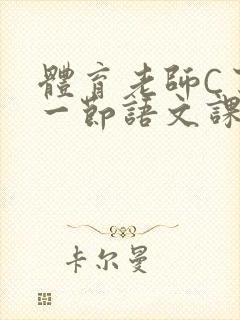 體育老師C
一節語文課
卡尔曼